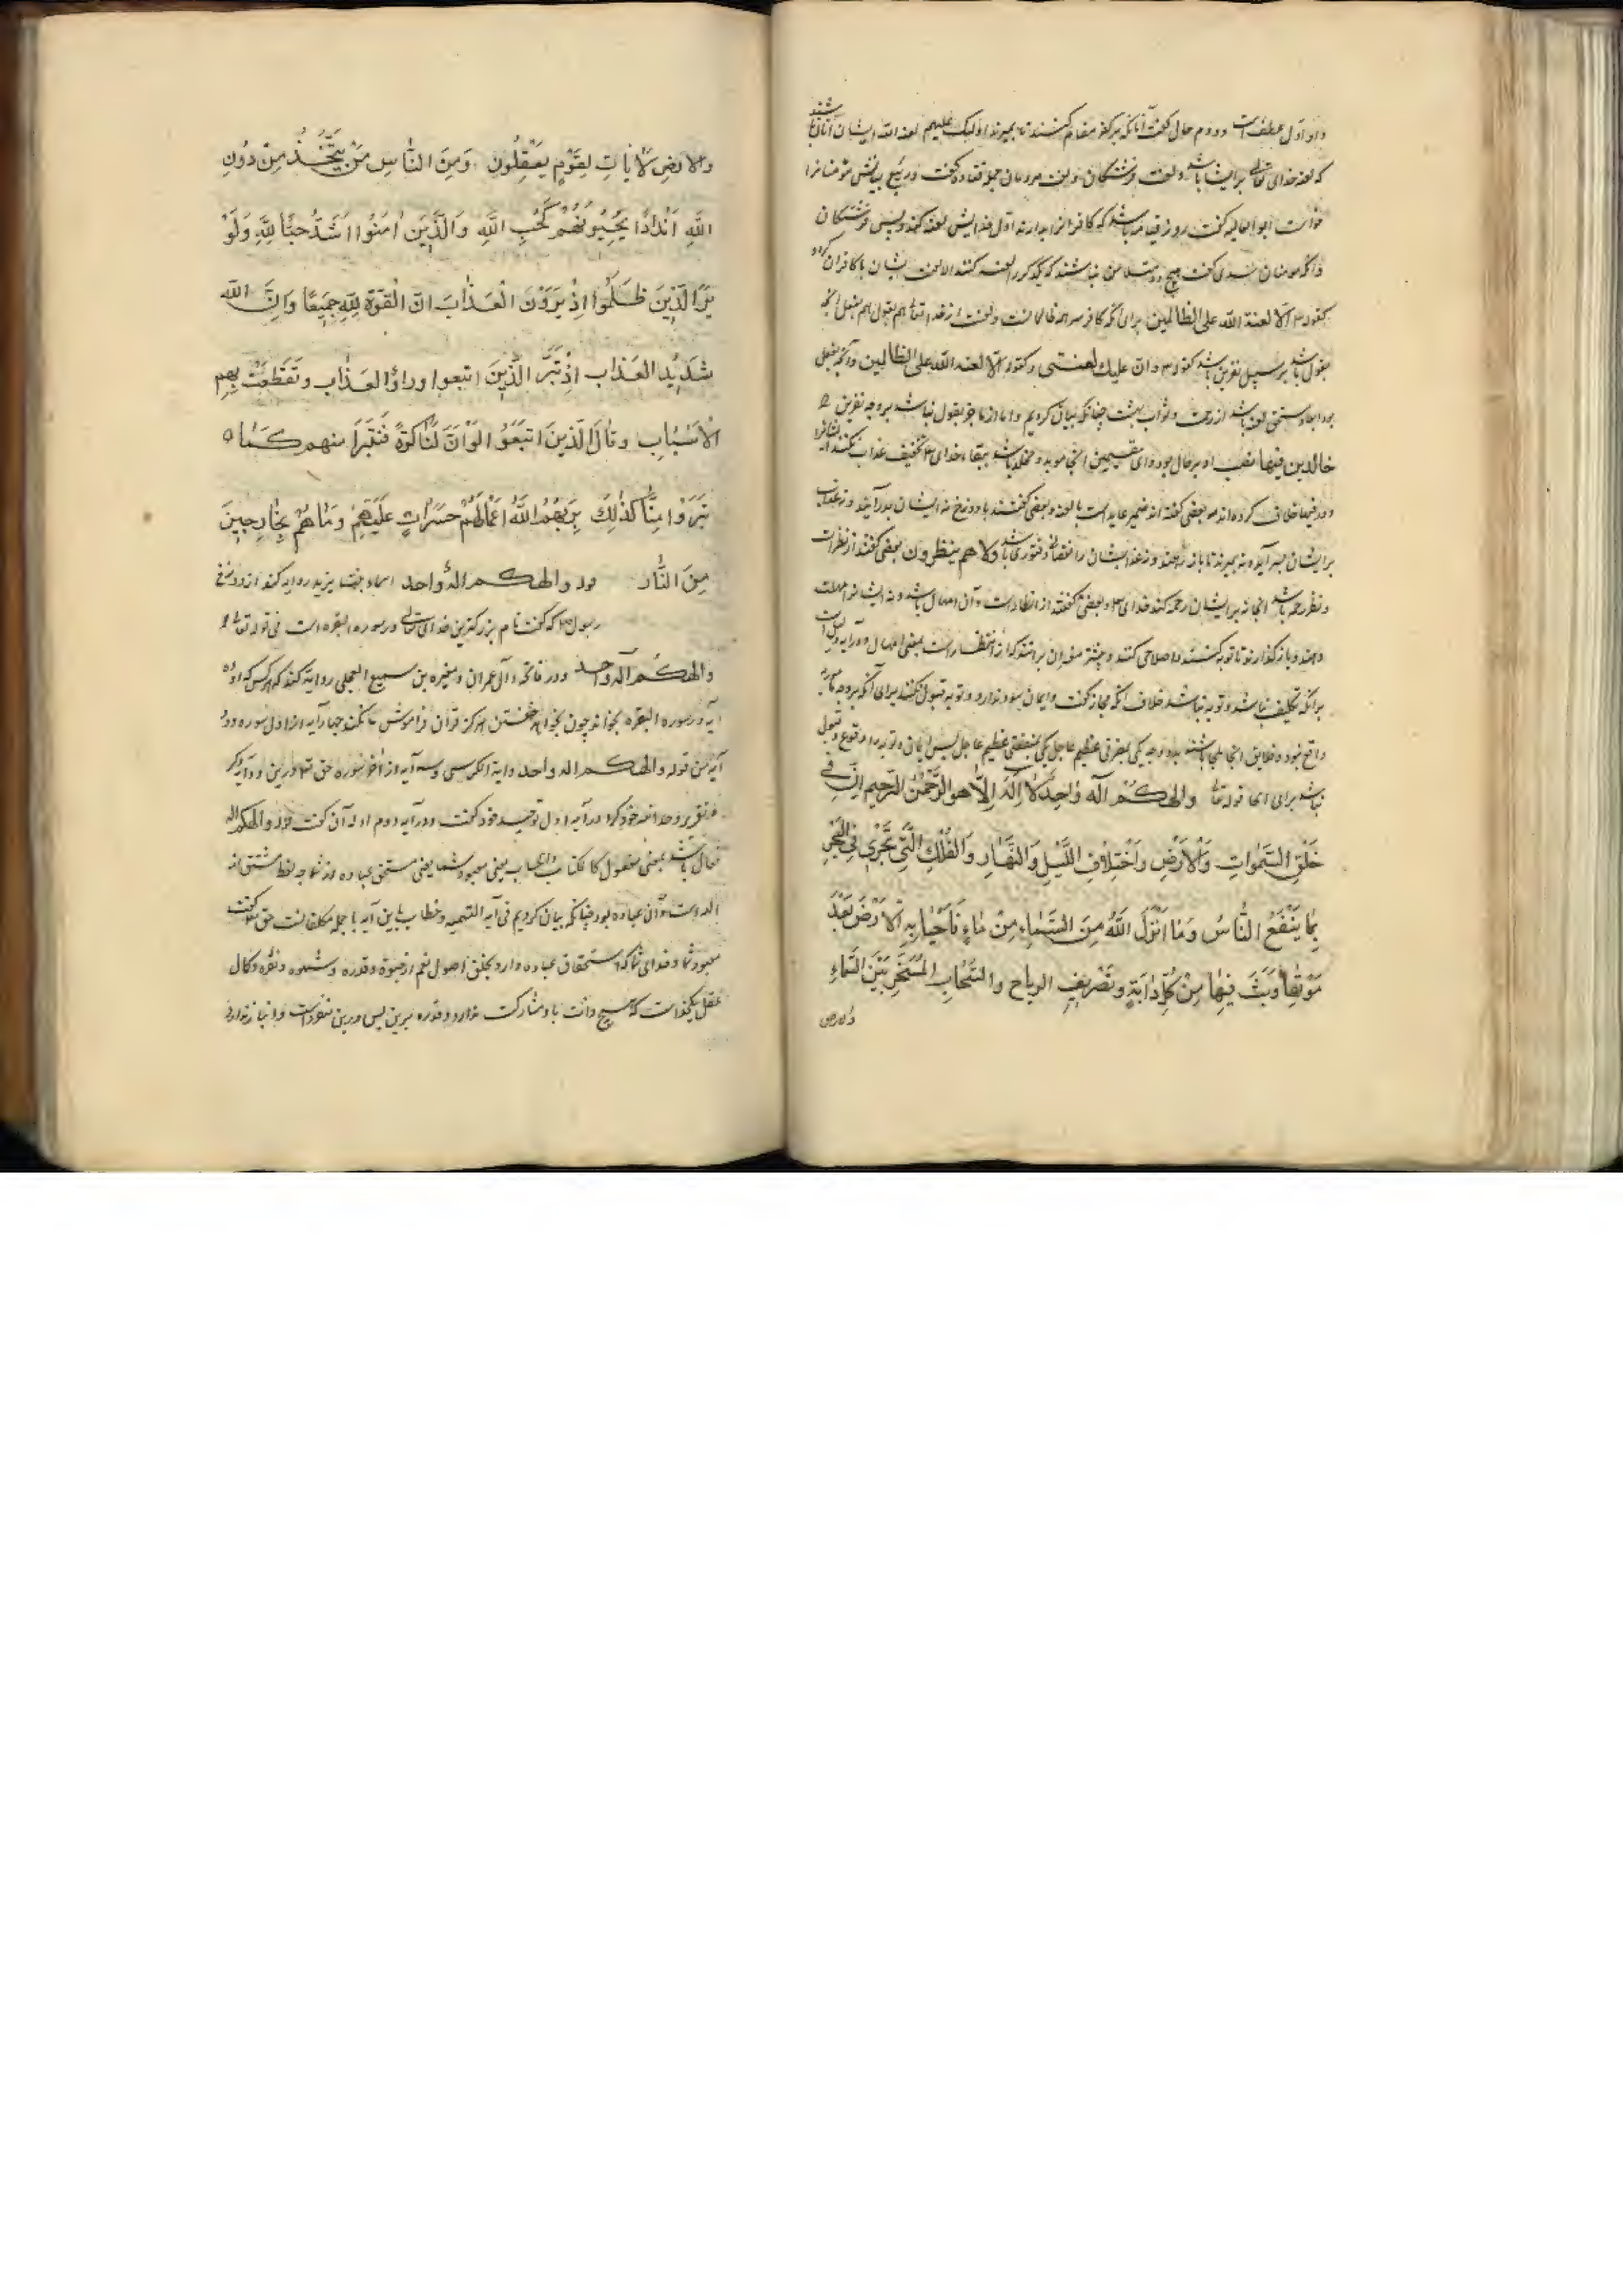 واو اول عطف است و دوم حال گفت آنانکه بر کفر مقام کنند تا بمیرند اولئک علیهم لعنة الله ایشان آنان باشند
که لعنه خدای تعالی بر ایشان باشد و لعنت فرشتگان و لعنت مردمان جمله قتاده گفت و ربیع بناس مؤمنانرا
خواست ابو العالیه گفت روز قیامت باشد که کافرانرا بدارند اول خدایش لعنه کند و پس فرشتگان
و آنگه مومنان سدی گفت هیچ دو متلاعن نباشند که یکدیگر را لعنه کنند الا لعنت ایشان با کافران گردد
کقوله الا لعنة الله علی الظالمین برای آنکه کافر سر همه ظالمانست و لعنت از خدا تعالی هم بقول هم بفعل آنچه
بقول باشد بر سبیل نفرین باشد کقوله و ان علیک لعنتی و کقوله الا لعنة الله علی الظالمین و آنچه بفعل
بود ابعاد مستحق لعنه باشد از رحمت و ثواب بهشت چنانکه بیان کردیم و اما از ما جز بقول نباشد بر وجه نفرین
خالدین فیها نصب او بر حال بود و ای مقیمین آنجا موبد و مخلد باشد ببقاء خدای تخفیف عذاب نکنند ایشانرا
و در فیها خلاف کرده اند بعضی گفته اند ضمیر عاید است با لعنه و بعضی گفتند با دوزخ نه ایشان بدر آیند و نه عذاب
بر ایشان بسر آید و نه بمیرند تا باز رهند و نه عذاب ایشان را نقصانی و فتوری باشد ولا هم ینظرون بعضی گفتند از نظر است
و نظر رحمه باشد آنجا نه بر ایشان رحمه کند خدای و بعضی گفتند از انظار است و آن امهال باشد و نه ایشانرا مهلت
دهند و باز گذارند تا توبه کنند و اصلاحی کنند و بیشتر مفسران بر آنند که از انتظار است بمعنی امهال و در آیه دلیل است
بر آنکه تکلیف نباشد و توبه نباشد خلاف آنکه گفت و ایمان سود ندارد و توبه قبول نکنند برای آنکه بر وجه
واقع نبود و خلایق آنجا ملجا باشند بدو وجه یکی بمضرتی عظیم عاجل یکی بمنفعتی عظیم عاجل پس ایمانی و توبه را وقوع و قبول
نباشد برای قوله تعالی والهکم اله واحد لا اله الا هو الرحمن الرحیم ان فی
خَلْقِ السَّمٰوَاتِ وَالْاَرْضِ وَاخْتِلَافِ اللَّيْلِ وَالنَّهَارِ وَالْفُلْكِ الَّتِي تَجْرِي فِي الْبَحْرِ
بِمَا يَنْفَعُ النَّاسُ وَمَا اَنْزَلَ اللّٰهُ مِنَ السَّمَاءِ مِنْ مَاءٍ فَاَحْيَا بِهِ الْاَرْضَ بَعْدَ
مَوْتِهَا وَبَثَّ فِيهَا مِنْ كُلِّ دَابَّةٍ وَتَصْرِيفِ الرياح والسَّحَابِ الْمُسَخَّرِ بَيْنَ السَّمَاءِ
والارض
والارضِ لَاٰيَاتٍ لِقَوْمٍ يَعْقِلُونَ وَمِنَ النَّاسِ مَنْ يَتَّخِذُ مِنْ دُونِ
اللّٰهِ اَنْدَادًا يُحِبُّونَهُمْ كَحُبِّ اللّٰهِ وَالَّذِينَ اٰمَنُوا اَشَدُّ حُبًّا لِلّٰهِ وَلَوْ
يَرَى الَّذِينَ ظَلَمُوا اِذْ يَرَوْنَ الْعَذَابَ انّ الْقُوَّةَ لِلّٰهِ جَمِيعًا وَاَنَّ اللّٰه
شَدِيدُ العَذَاب اِذْ تَبَرَّ الَّذِينَ اتبعوا وراوُا العَذَاب وتَقَطَّعَتْ بِهِم
الاَسْبَابِ وقَالَ الَّذِينَ اتَّبَعُوا لَوْاَنَّ لَنَا كَرَّةً فَنَتَبَرَّاَ منهم كَمَا
تَبَرَّوْا مِنَّا كَذٰلِكَ يُرِيهُمُ اللّٰهُ اَعْمَالَهُمْ حَسَرَاتٍ عَلَيْهِمْ وَمَا هُمْ بِخَارِجِينَ
مِنَ النَّار قوله والهکم اله واحد اسماء بنت یزید روایه کند از
رسول که گفت نام بزرگترین خدای تعالی در سوره البقره است فی قوله تعالی
والهکم اله واحد و در فاتحه آل عمران و مغیره بن سبیع العجلی روایة کند که هر کس که او ده
آیه از سوره البقره بخواند چون بخواهد خفتن هرگز قرآن فراموش نکند چهار آیه از اول سوره و دو
آیه من قوله والهکم اله واحد و ایة الکرسی و سه آیه از آخر سوره حق تعالی درین دو آیه ذکر
و تقریر وحدانیه خود کرد در آیه اول توحید خود گفت و در آیه دوم ادله آن گفت قوله والهکم اله
فعال باشد بمعنی مفعول کالکتاب و الحساب یعنی معبود شما یعنی مستحق عباده لفظ مشتق از
اله است و آن عباده بود چنانکه بیان کردیم فی آیه التسمیه و خطاب باین آیه با جمله مکلفانست حق تعالی گفت
معبود شما و خدای شما که استحقاق عباده دارد بخلق اصول نعم از حیوة و قدره و شهوه و نفره و کمال
عقل یکخداست که هیچ ذات با او مشارکت ندارد و قدره برین پس درین متفرد است و انباز ندارد